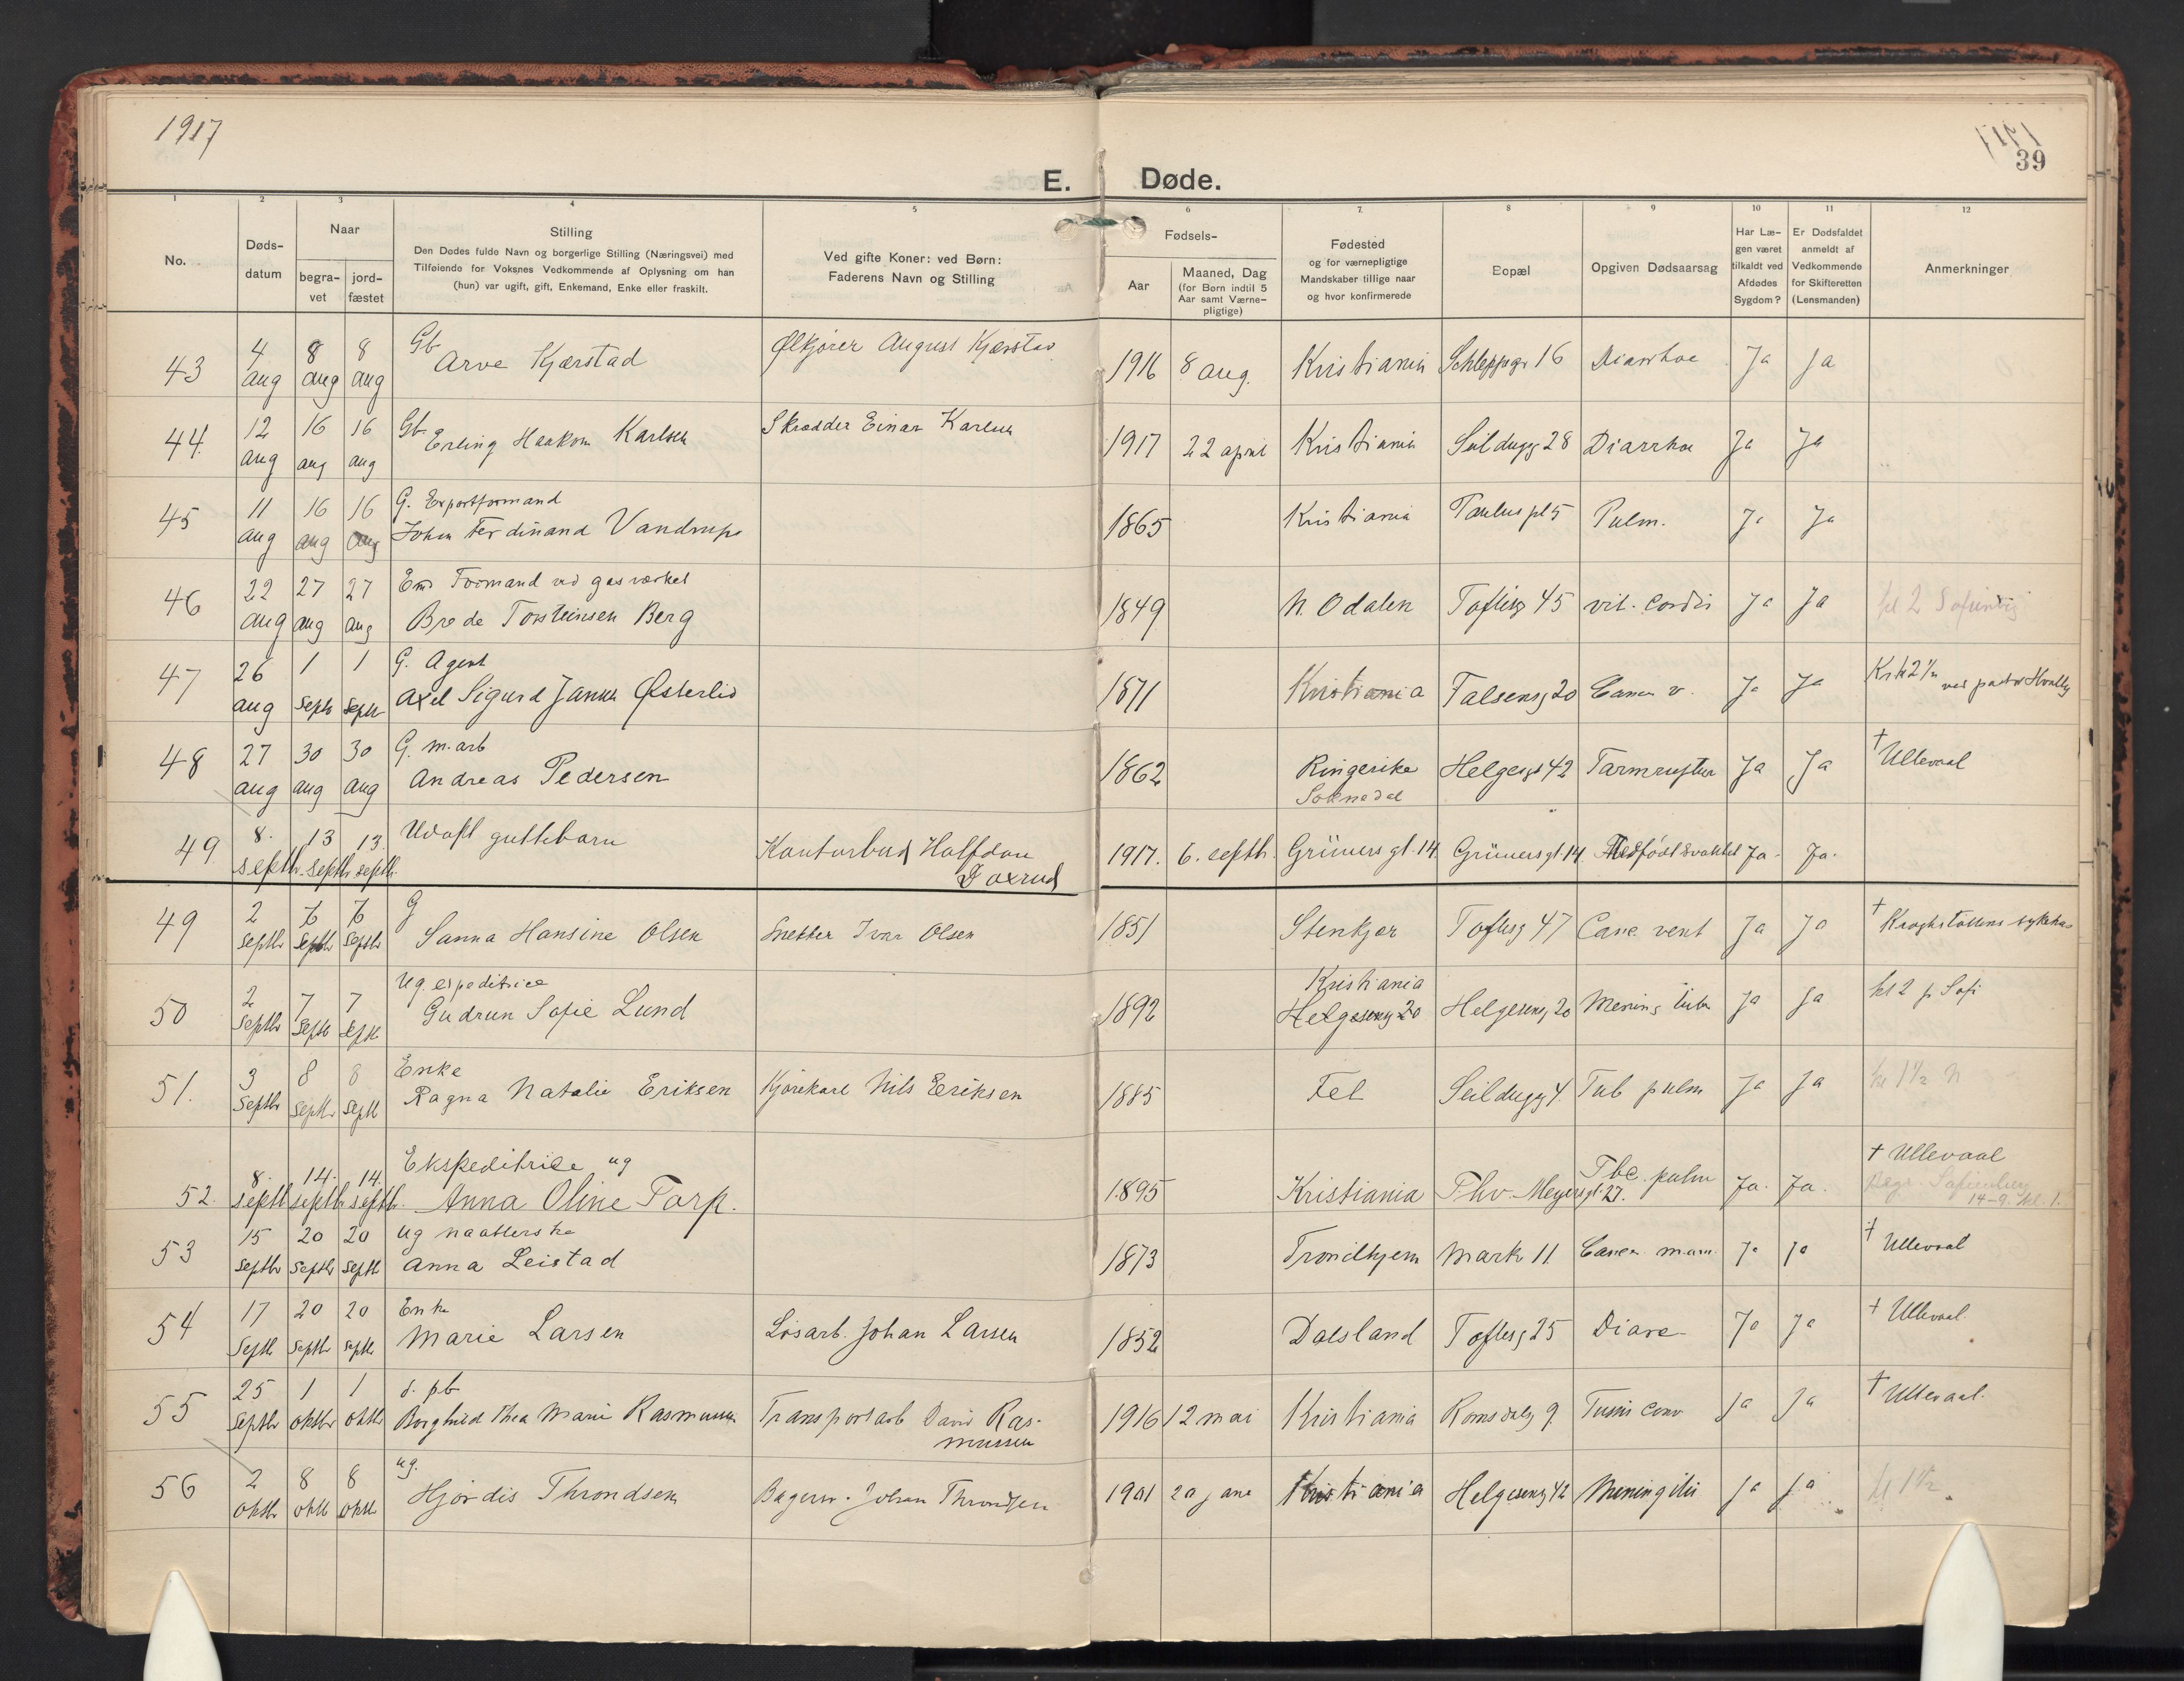 1917
39
E. Døde.
1 2 3 4 5 6 7. 8 9 10 11 12
No.
Døds-
datum
Naar
begra-
vet
jord-
fæstet
Stilling
Den Dødes fulde Navn og borgerlige Stilling (Næringsvei) med
Tilføiende for Voksnes Vedkommende af Oplysning om han
(hun) var ugift, gift, Enkemand, Enke eller fraskilt.
Ved gifte Koner: ved Børn:
Faderens Navn og Stilling
Fødsels-
Aar
Maaned, Dag
(for Børn indtil 5
Aar samt Værne-
pligtige)
Fødested
og for værnepligtige
Mandskaber tillige naar
og hvor konfirmerede
Bopæl
Opgiven Dødsaarsag
Har Læ-
gen været
tilkaldt ved
Afdødes
Sygdom?
Er Dødsfaldet
anmeldt af
Vedkommende
for Skifteretten
(Lensmanden)
Anmerkninger
4 8 8 Gb Ølkjører August Kjærstad
43 aug aug aug Arve Kjærstad 1916 8 aug. Kristiania Schleppgr 16 Diarrhoe Ja Ja
12 16 16 Gb Skrædder Einar Karlsen
44. aug aug aug Erling Haakon Karlsen 1917 22 april Kristiania Seildugsg 28 Diarrhoe Ja Ja
11 16 16 G. Exportformand
45 aug aug aug Johan Ferdinand Vandrup 1865 Kristiania Paulus pl 5 Pulm. Ja Ja
22 27 27 Em Formand ved gasværket
46 aug aug aug Brede Torsteinsen Berg 1849 N Odalen Toftesg 45 vit. cordis Ja Ja kl 2
26 1 1 G. Agent
47 aug Septb Septb Axel Sigurd Østerlid 1871 Kristiania Falsensg 20 Cancer v. Ja Ja Kr k 2 1/2 ved pastor
27 30 30 G. m. arb
48 aug aug aug Andreas Pedersen 1862 Ringerike Helgesgt 42 Tarmruptur Ja Ja † Ullevaal
Soknedal
8. 13 13. Udøpt guttebarn
49. septb. septb. septb. Kontorbud Halfdan 1917. 6. septb. Grüners gt. 14. Grüners gt. 14. Medfødt svakhet Ja. Ja.
Doxrud
2 6 6 G
49 Septb Septb Septb Sanna Hansine Olsen Snekker Ivar Olsen 1851 Stenkjær Toftesg 47 Canc. vent Ja Ja † Kroghstøttens sykehus
2 7 7 Ug. expeditrice Kristiania
50 Septb Septb Septb Gudrun Sofie Lund 1892 Helgesensg 20 Helgesensg 20 Mening tub Ja Ja kl 2 p Sofi
3 8 8 Enke
51. Septb Septb Septb Ragna Natalie Eriksen Kjørekarl Nils Eriksen 1885 Fet Seildugsg 4. Tub pulm Ja Ja kl 1 1/2 N
8. 14. 14. Ekspeditrice ug † Ullevaal
52. septb septb septb. Anna Oline Torp. 1895 Kristiania Thv. Meyersgt. 27. Tbc. pulm Ja. Ja. Begr. Sofienberg
14-9. kl. 1.
15 20 20 Ug naatlerske
53 Septb Septb Septb Anna Leistad 1873 Trondhjem Markv 11. Cancer mam. Ja Ja † Ullevaal
17 20 20 Enke
54 Septb Septb Septb Marie Larsen Løsarb. Johan Larsen 1852 Dalsland Toftesg 25 Diare Ja Ja † Ullevaal
25 1 1 d. pb
55 Septb Oktbr Oktbr Borghild Thea Marie Rasmussen Transportarb David Ras- 1916 12 mai Kristiania Romsdalsg 9. Tussis conv Ja Ja † Ullevaal.
mussen
2 8 8 ug.
56 Oktbr Oktb Oktbr Hjørdis Throndsen Bagersv. Johan Throndsen 1901 20 jane Kristiania Helgesensg 42 Meningitis Ja Ja kl 1 1/2